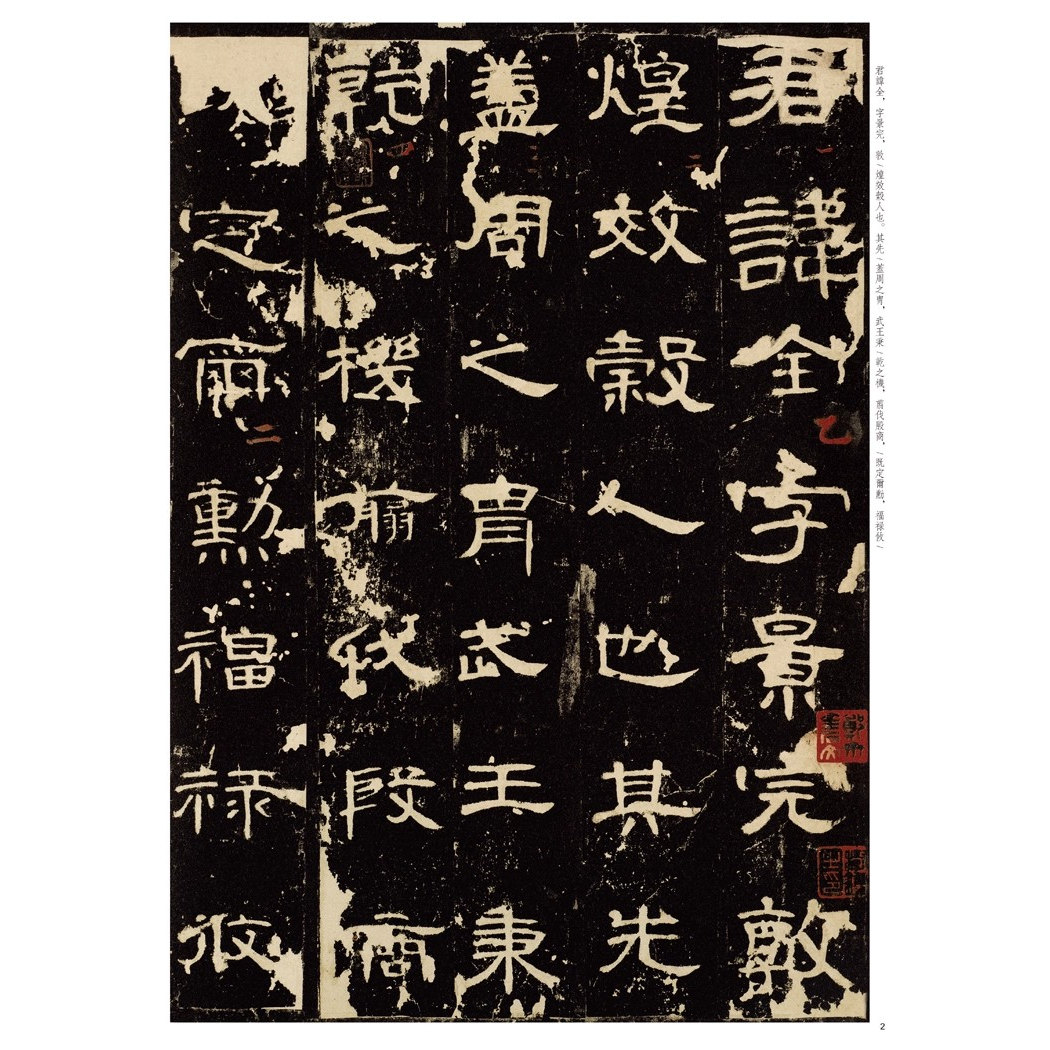 君諱全字景完敦
煌效穀人也其先
蓋周之胄武王秉
乾之機翦伐殷商
既定爾勳福祿攸
君諱全，字景完，敦/煌效穀人也。其先/蓋周之胄，武王秉/乾之機，翦伐殷商，/既定爾勳，福祿攸/
一
二
三
四
乙
二
2